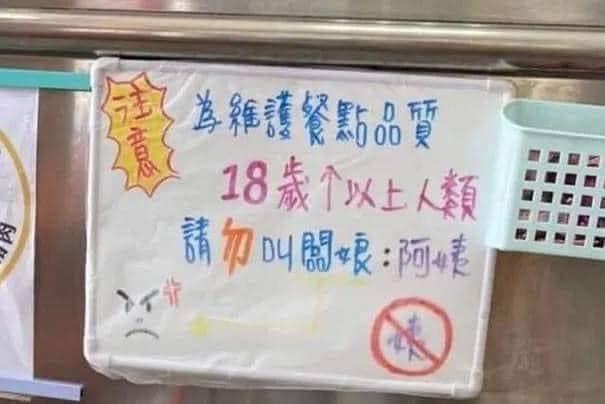 注意
為維護餐點品質
18歲个以上人類
請勿叫闆娘：阿姨
姨
肉